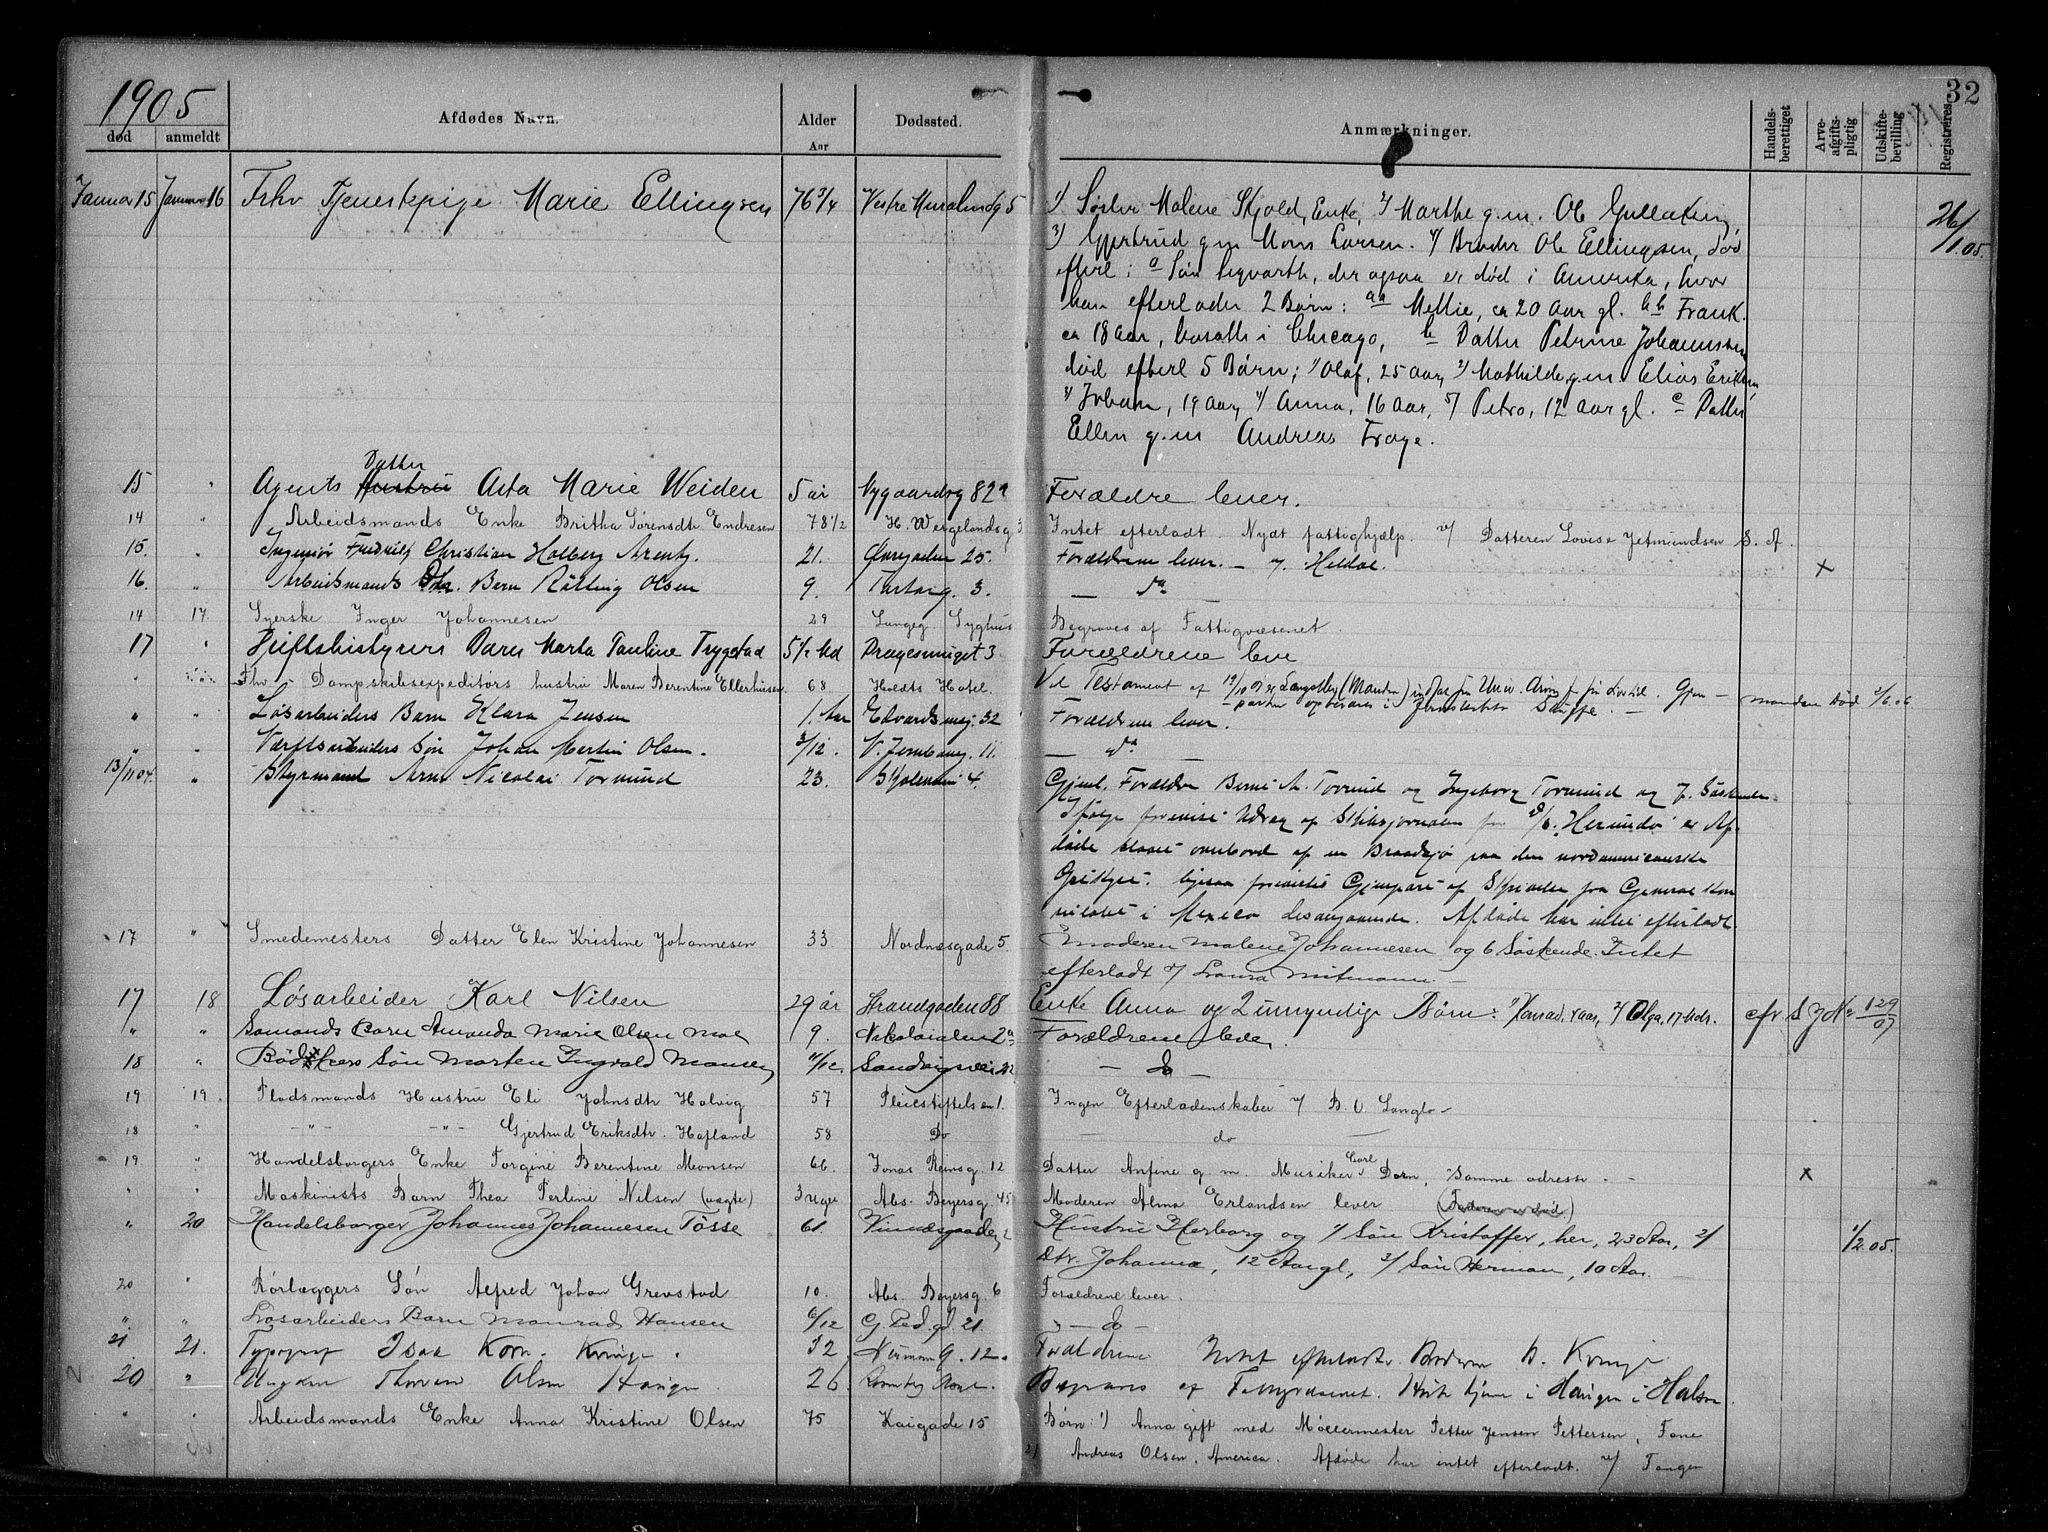 32
1905
død anmeldt Afdødes Navn. Alder Aar Dødssted. Anmærkninger. Handels- berettiget Arve- afgifts- pligtig Udskifte- bevilling Registreres
Januar 15 Januar 16 Fhv Tjenestepige Marie Ellingsen 76 3/4 Vestre Muralmdg 5 1) Søster Malene Skjold, Enke, 2/ Marthe g.m. Ole 26/1.05.
3) Gjertrud g.m. Mons Larsen. 4/ Broder Ole Ellingsen, død
efterl: a Søn Sigvarth, der ogsaa er død i Amerika, hvor
han efterlader 2 Børn: aa Mellie, ca 20 Aar gl. bb Frank.
ca 18 Aar, bosatte i Chicago, b Datter Petrine Johannessen
død efterl 5 Børn; 1) Olaf, 25 Aar, 2) Mathilde g.m. Elias Eriksen
3) Johan, 19 Aar, 4/ Anna, 16 Aar, 5/ Petra, 12 Aar gl. c Datter
Ellen g.m Andreas Frage.
15 " Agents Hustru Datter Asta Marie Weiden 5 år Nygaardsg 82a Forældre lever.
14 " Arbeidsmands Enke Britha Sørensdtr Endresen 78 1/2 H. Wergelandsg 3 Intet efterladt. Nydt fattighjælp. v/ Datteren Lovise Jetmundsen S. A.
15. " Ingeniør Fredrik Christian Holberg Arentz. 21. Øvregaden 25. Forældrene lever. — v. Heldal. x
16. " Arbeidsmands Barn Rolling Olsen 9. Tartarg. 3. — do
14 17 Syerske Inger Johannesen 29 Lungeg. Syghus Begraves af Fattigvæsenet.
17 " Driftsbestyrers Datter Marta Pauline Trygstad 5 1/2 Md Dragesmuget 3 Forældrene leve
" Fhv. Dampskibsexpeditørs hustru Maren Berentine Ellerhusen 68 Holdts Hotel. Ved Testament af manden død 2/6.06
" " Løsarbeiders Barn Klara Jensen 1. Aar Edvardsmsg. 32 Forældrene lever.
" " Værftsarbeiders Søn Johan Martin Olsen. 3/12. V. Jernbaneg. 11. — do —
13/11 04. " Styrmand Arne Nicolai Tormund 23. Skolemsm 4. Gjenl. Forældre Berne A. Tormund og Ingeborg Tormund og 7. Søskende.
Ifølge foreviste Udrag af Skibsjornalen fra D/S. "Herundø" er Af-
døde slaaet overbord af en Braadsjø paa den nordamericanske
Østkyst. ligesaa forevistes Gjenpart af Skrivelse fra General Kon
sulatet i Mexico desangaaende. Afdøde har intet efterladt.
17 " Smedemesters Datter Elen Kristine Johannesen 33 Nordnæsgade 5. Moderen Malene Johannesen og 6 Søskende. Intet
efterladt v/ Laura Mitmann —
17 18 Løsarbeider Karl Nilsen 29 år Strandgaden 88 Enke Anna og 2 umyndige Børn: 1) Konrad, 4 aar, 2/ Olga, 17 Mdr. cfr S J No 129/07
" " Sømands Barn Amanda Marie Olsen Moe 9. Nikolaialm 2a Forældrene lever.
18 " Bødkers Søn Morten Ingvald Monsen 11/12. Sandvigsvei 22 — do —
19 19. Flodsmands Hustru Eli Johnsdtr Holvig 57 Pleiestiftelsen 1. Ingen Efterladenskaber v/ B. O. Langlo —
18 " — " — — " — Gjertrud Eriksdtr. Hafland 58 Do — do —
19 " Handelsborgers Enke Torgine Berentine Monsen 66 Jonas Reinsg. 12 Datter Anfine g. m. Musiker Carl Dorn, Samme adresse. — x
" " Maskinists Barn Thea Perline Nilsen (uægte) 3 uger Abs. Beyersg. 45 Moderen Alma Erlandsen lever (Faderen er død.)
" 20 Handelsborger Johannes Johannesen Tøsse 61. Vinnæsgaden 2 Hustru Herborg og 1/ Søn Kristoffer, her, 23 Aar, 2/ 1/2.05.
Dtr. Johanna, 12 Aargl, 3/ Søn Herman, 10 Aar. —
20 " Rørlæggers Søn Alfred Johan Grevstad 10. Abs. Beyersg. 6 Forældrene lever.
" " Løsarbeiders Barn Monrad Hansen 6/12 G. Ped. gd. 21. " — do —
21 21. Typograf Isak Korn. Kvinge. 32. Neumann G. 12. Forældrene Intet efterladt. Broderen D. Kvinge
20 " Ungkar Olsen Haugen 26. Begraves af Fattigvæsenet. Haugen i Halsen
" " Arbeidsmands Enke Anna Kristine Olsen 75 Kaigade 15 Børn: 1) Anna gift med Møllermester Petter Jensen Pettersen, Fane
2) Andreas Olsen, America. Afdøde har intet efterladt. v/ Tangen